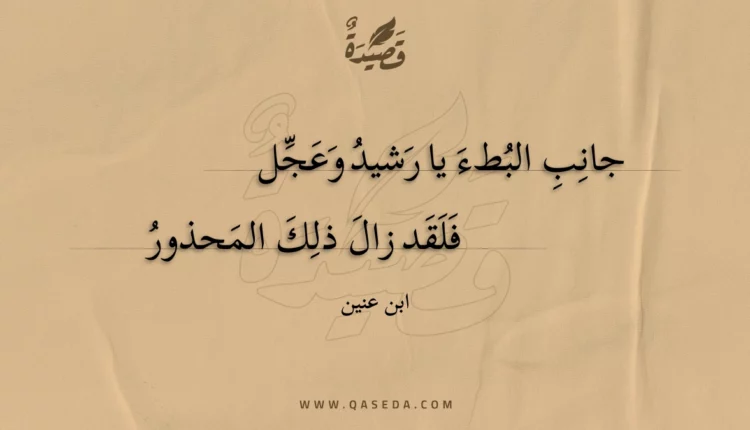 قَصِيدَةٌ
جانِبِ البُطءَ يا رَشيدُ وَعَجِّل
فَلَقَد زالَ ذلِكَ المَحذورُ
ابن عنين
WWW.QASEDA.COM